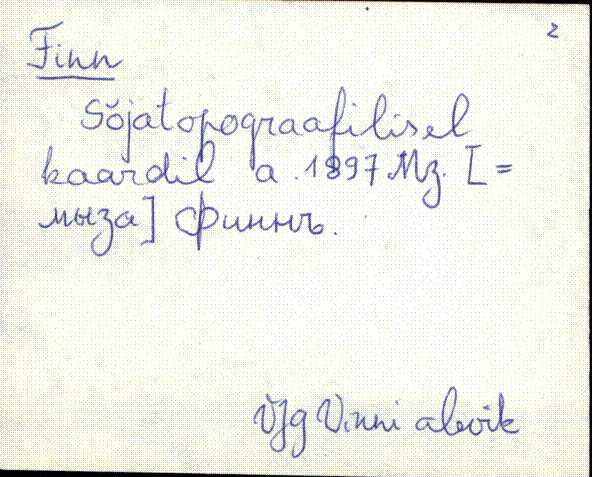 2
Finn
Sõjatopograafilisel
kaardil a. 1897 Mz. [=
мыза] финнъ.
VJg Vinni alevik